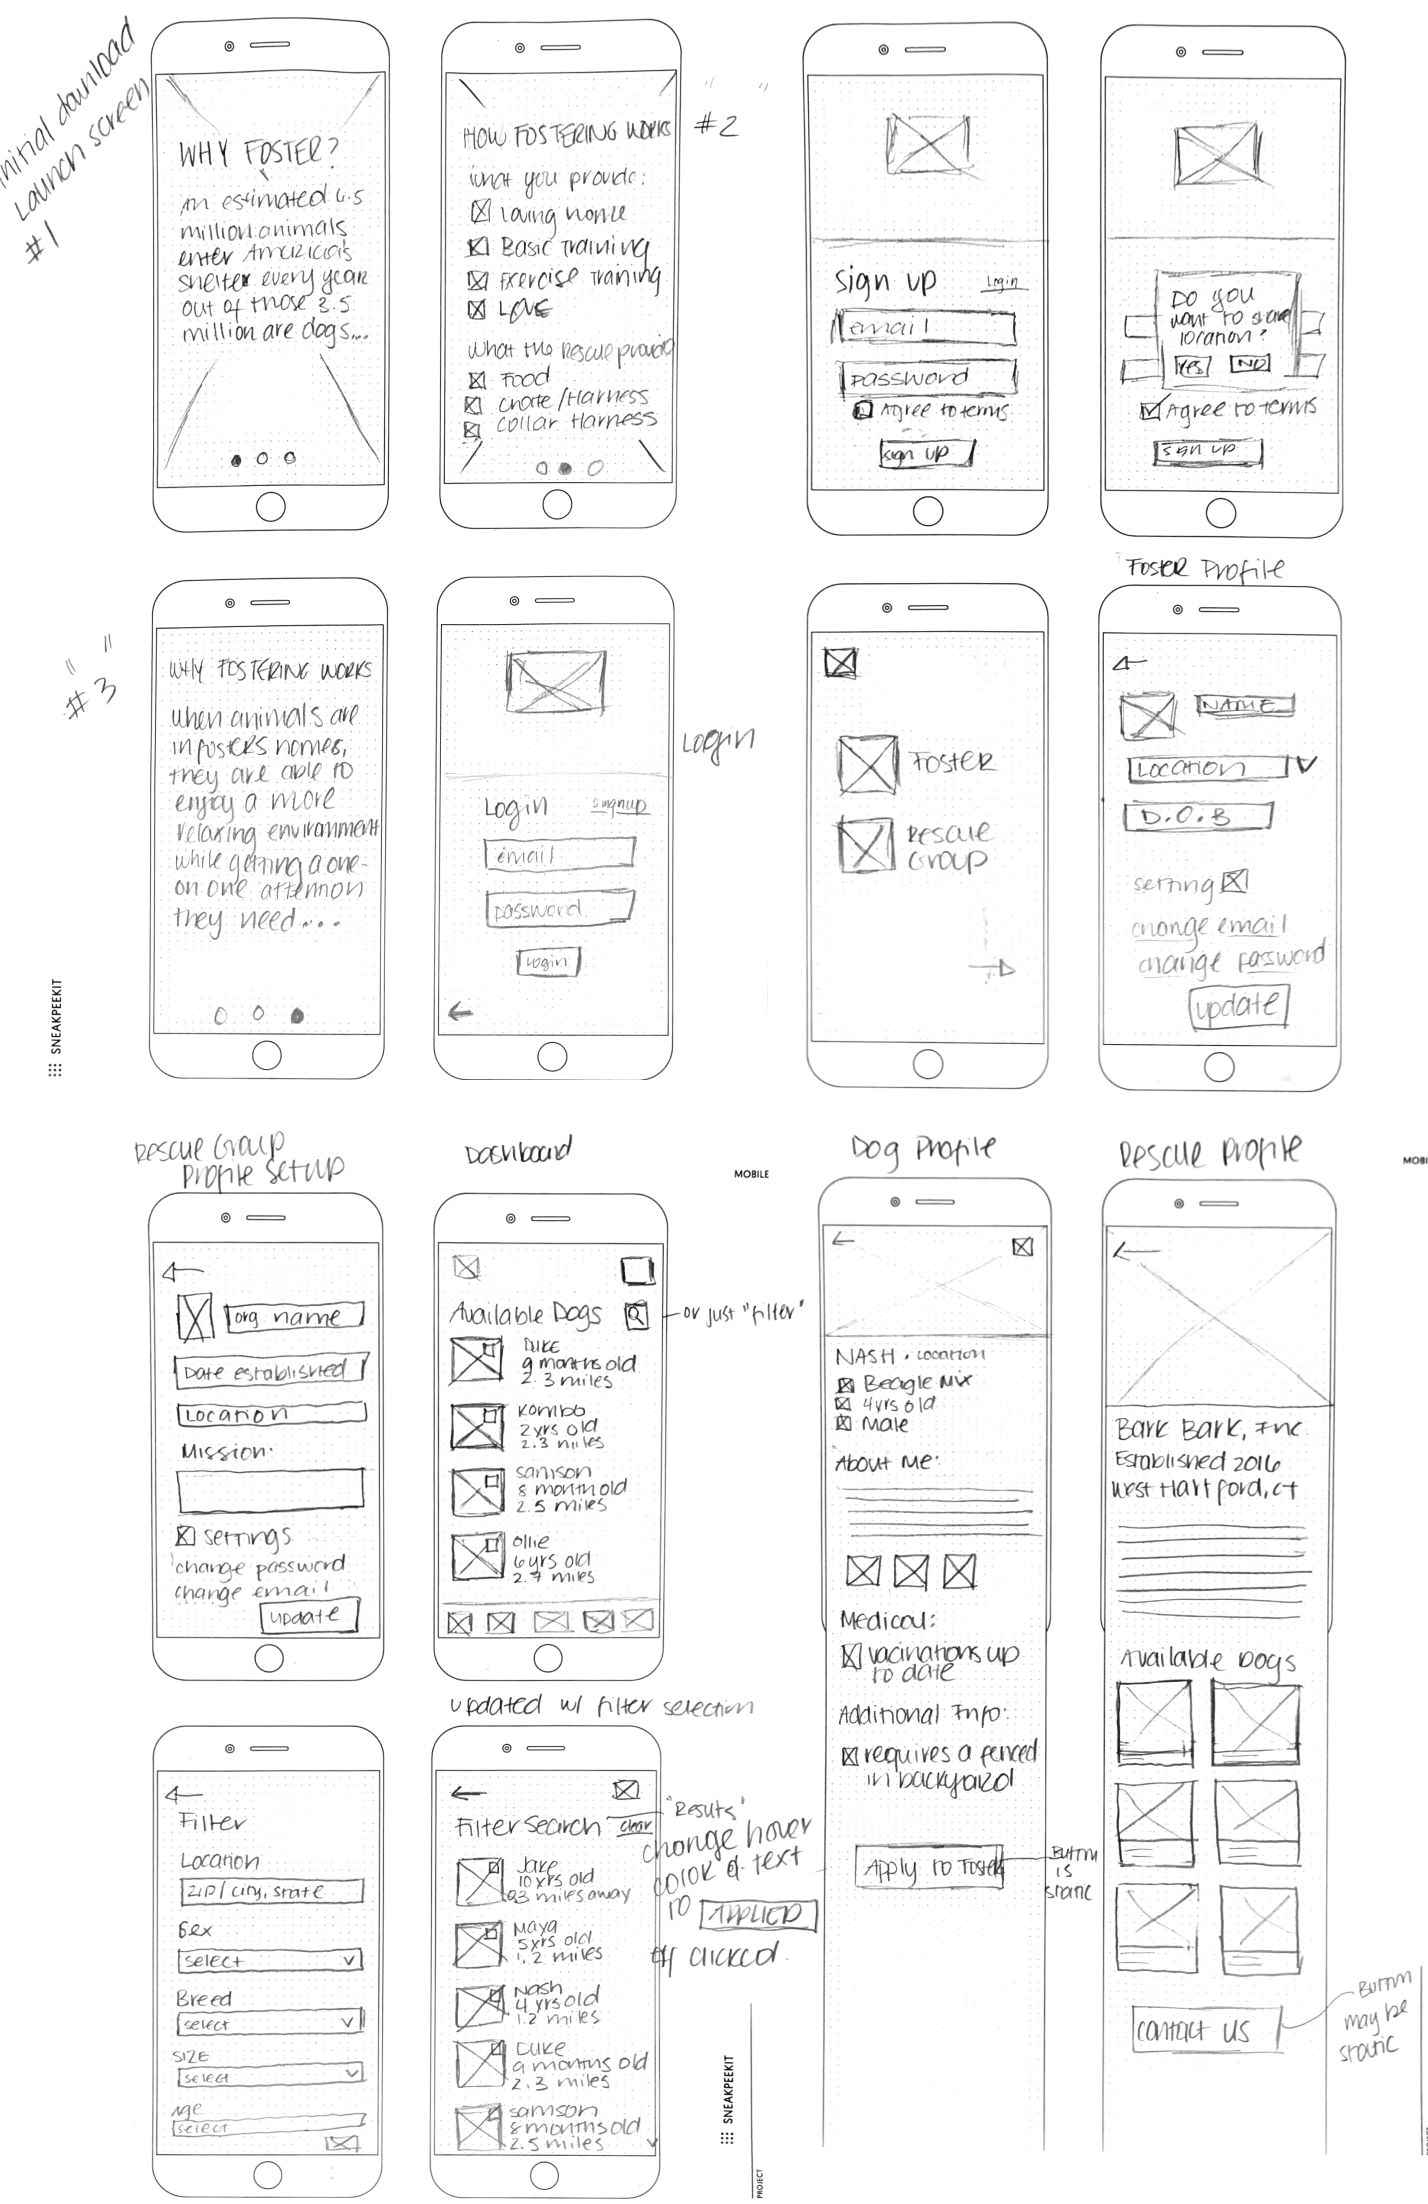 initial download
Launch screen
#1
WHY FOSTER?
An estimated 6.5
million animals
enter America's
shelter every year
out of those 3.5
million are dogs...
" "
#2
HOW FOSTERING WORKS
what you provide:
Loving home
Basic Training
Exercise Training
LOVE
What the Rescue provid
Food
Crate/Harness
Collar Harness
sign up
Login
email
password
Agree to terms
sign up
Do you
want to share
location?
Yes
NO
Agree to terms
sign up
" "
#3
WHY FOSTERING WORKS
when animals are
in fosters homes,
they are able to
enjoy a more
relaxing environment
while getting a one-
on one attention
they need....
Login
Login
signup
email
password
Login
Foster
Rescue
Group
Foster Profile
NAME
Location
D.O.B
setting
change email
change password
update
SNEAKPEEKIT
Rescue Group
Profile Setup
org name
Date established
Location
Mission:
settings
change password
change email
update
Dashboard
MOBILE
Available Dogs
or just "filter"
Duke
9 months old
2.3 miles
Kombo
2 yrs old
2.3 miles
Samson
8 month old
2.5 miles
Ollie
6 yrs old
2.7 miles
Dog Profile
NASH . Location
Beagle Mix
4 yrs old
Male
About Me:
Medical:
vacinations up
to date
Additional Info:
requires a fenced
in backyard
Apply to Foster
Button
is
static
Rescue Profile
MOBI
Bark Bark, Inc
Established 2016
West Hartford, CT
Available Dogs
contact us
Button
may be
static
Filter
Location
zip/ city, state
Sex
select
Breed
select
SIZE
select
Age
select
updated w/ filter selection
Filter Search
clear
"Results"
Jake
10 yrs old
0.3 miles away
Maya
5 yrs old
1.2 miles
Nash
4 yrs old
1.2 miles
Duke
9 months old
2.3 miles
samson
8 months old
2.5 miles
change hover
color of text
to APPLIED
if clicked.
SNEAKPEEKIT
PROJECT